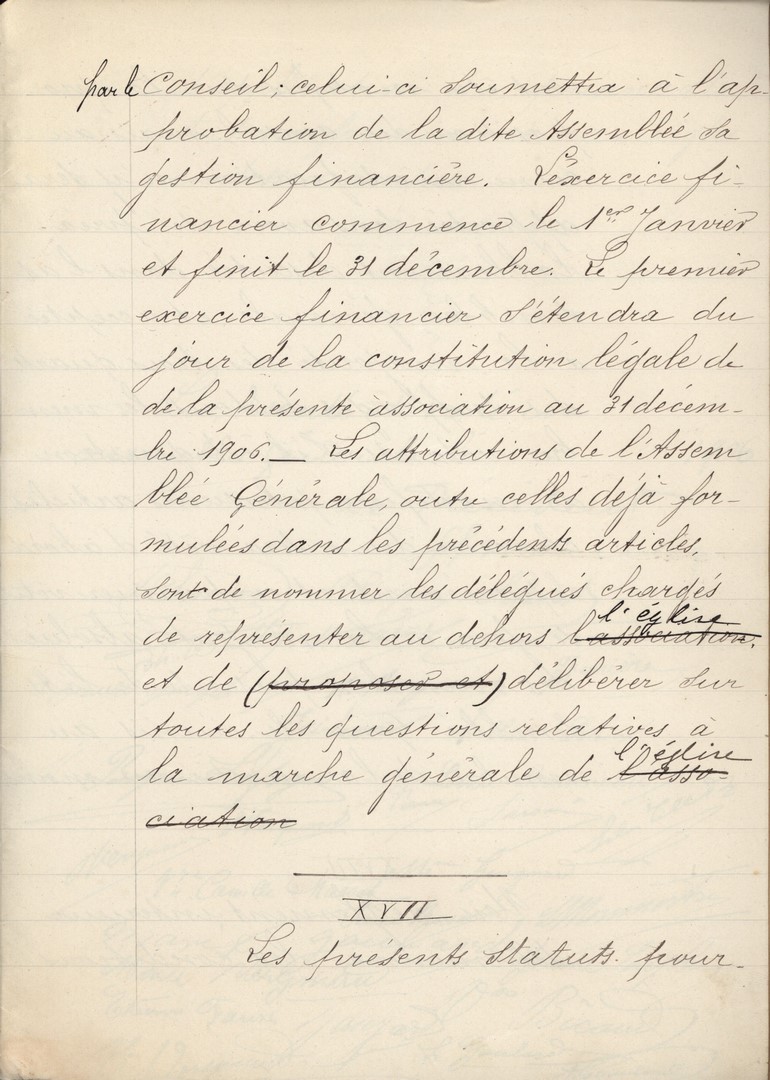 par le Conseil; celui-ci soumettra à l'ap-
probation de la dite Assemblée sa
gestion financière. L'exercice fi-
nancier commence le 1er Janvier
et finit le 31 décembre. Le premier
exercice financier s'étendra du
jour de la constitution légale de
de la présente association au 31 décem-
bre 1906. — Les attributions de l'Assem
blée Générale, outre celles déjà for-
mulées dans les précédents articles,
sont de nommer les délégués chargés
de représenter au dehors l'association, l'église
et de (proposer et) délibérer sur
toutes les questions relatives à
la marche générale de l'asso- l'église
ciation
XVII
Les présents statuts pour-